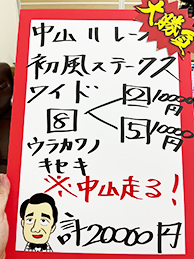 大勝負
中山11レース
初風ステークス
ワイド
8
2 10000円
5 10000円
ウラカワノ
キセキ
※中山走る!
計20000円